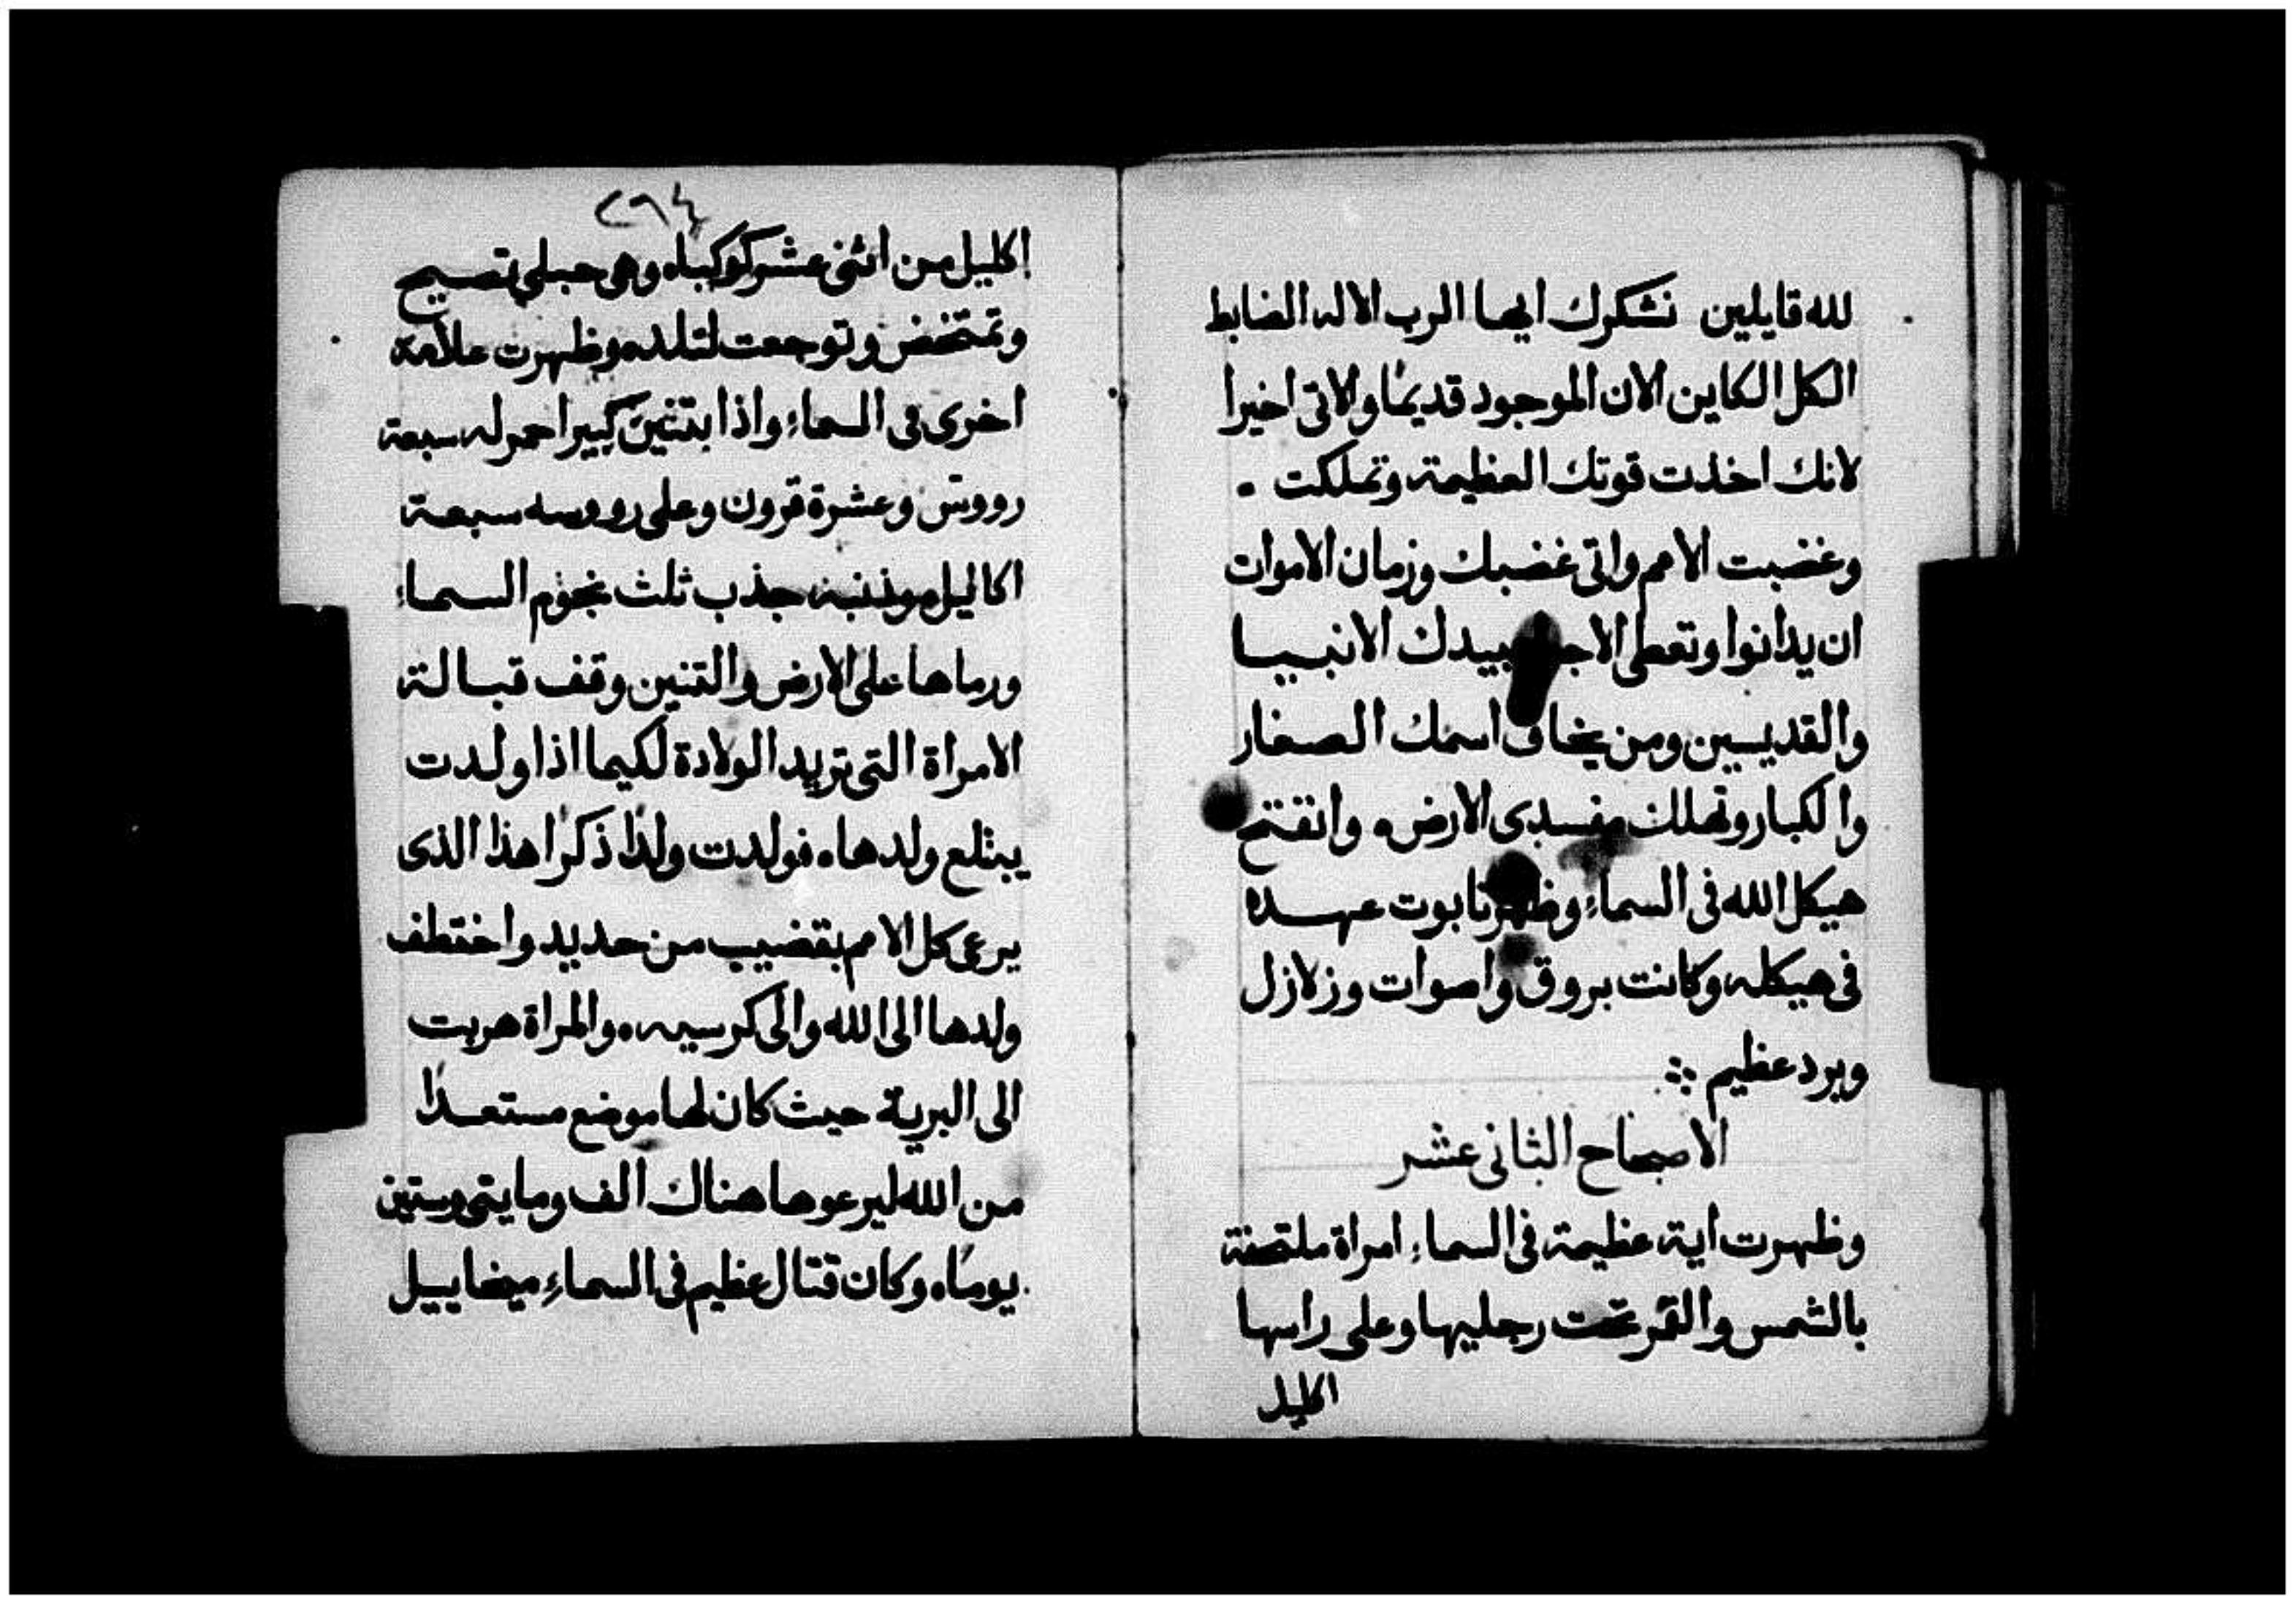 لله قايلين نشكرك ايها الرب الاله الضابط
الكل الكاين الان الموجود قديمًا والاتى اخيرا
لانك اخذت قوتك العظيمة وتملكت .
وغضبت الامم واتى غضبك وزمان الاموات
ان يدانوا وتعطى لعبيدك الانبيا
والقديسين ومن يخاف اسمك الصغار
والكبار وتهلك مفسدى الارض. وانفتح
هيكل الله فى السماء وظهر تابوت عهده
فى هيكله وكانت بروق واصوات وزلازل
وبرد عظيم
الاصحاح الثانى عشر
وظهرت اية عظيمة فى السماء امراة ملتحفة
بالشمس والقمر تحت رجليها وعلى راسها
اكليل
٢٩٤
اكليل من اثنى عشر كوكبا. وهى حبلى تصيح
وتمتخض وتوجعت لتلد. وظهرت علامة
اخرى فى السماء واذا بتنين كبير احمر له سبعة
رووس وعشرة قرون وعلى رووسه سبعة
اكاليل وذنبه جذب ثلث نجوم السماء
ورماها على الارض والتنين وقف قبالة
الامراة التى تريد الولادة لكيما اذا ولدت
يبتلع ولدها. فولدت ولدًا ذكرًا هذا الذى
يرعى كل الامم بقضيب من حديد واختطف
ولدها الى الله والى كرسيه. والمراة هربت
الى البرية حيث كان لها موضع مستعدًا
من الله ليرعوها هناك الف ومايتى وستين
يومًا. وكان قتال عظيم فى السماء ميخاييل